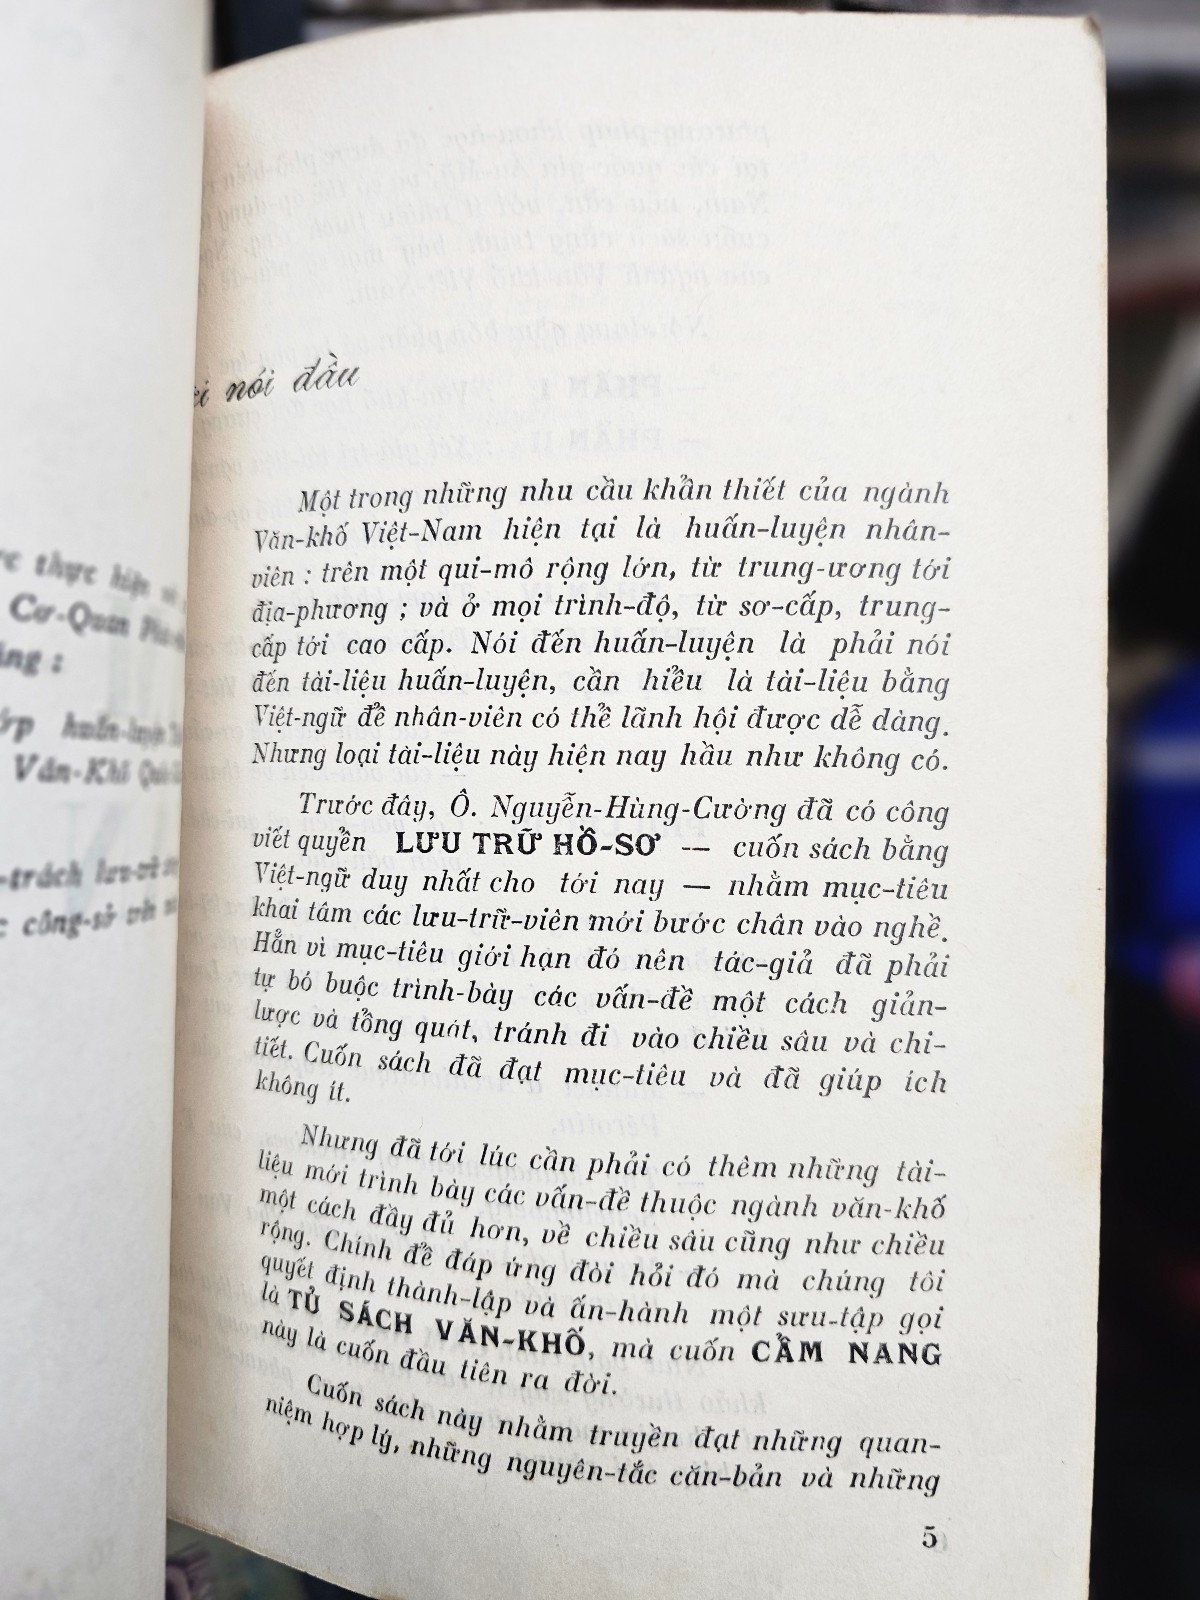 thực hiện
Cơ-Quan
huấn-luyện
Văn-Khố
-trách lưu-
công-sở với
nói đầu
Một trong những nhu cầu khẩn thiết của ngành
Văn-khố Việt-Nam hiện tại là huấn-luyện nhân-
viên : trên một qui-mô rộng lớn, từ trung-ương tới
địa-phương ; và ở mọi trình-độ, từ sơ-cấp, trung-
cấp tới cao cấp. Nói đến huấn-luyện là phải nói
đến tài-liệu huấn-luyện, cần hiểu là tài-liệu bằng
Việt-ngữ để nhân-viên có thể lãnh hội được dễ dàng.
Nhưng loại tài-liệu này hiện nay hầu như không có.
Trước đây, Ô. Nguyễn-Hùng-Cường đã có công
viết quyển LƯU TRỮ HỒ-SƠ -— cuốn sách bằng
Việt-ngữ duy nhất cho tới nay — nhằm mục-tiêu
khai tâm các lưu-trữ-viên mới bước chân vào nghề.
Hẳn vì mục-tiêu giới hạn đó nên tác-giả đã phải
tự bó buộc trình-bày các vấn-đề một cách giản-
lược và tổng quát, tránh đi vào chiều sâu và chi-
tiết. Cuốn sách đã đạt mục-tiêu và đã giúp ích
không ít.
Nhưng đã tới lúc cần phải có thêm những tài-
liệu mới trình bày các vấn-đề thuộc ngành văn-khố
một cách đầy đủ hơn, về chiều sâu cũng như chiều
rộng. Chính để đáp ứng đòi hỏi đó mà chúng tôi
quyết định thành-lập và ấn-hành một sưu-tập gọi
là TỦ SÁCH VĂN-KHỐ, mà cuốn CẨM NANG
này là cuốn đầu tiên ra đời.
Cuốn sách này nhằm truyền đạt những quan-
niệm hợp lý, những nguyên-tắc căn-bản và những
5